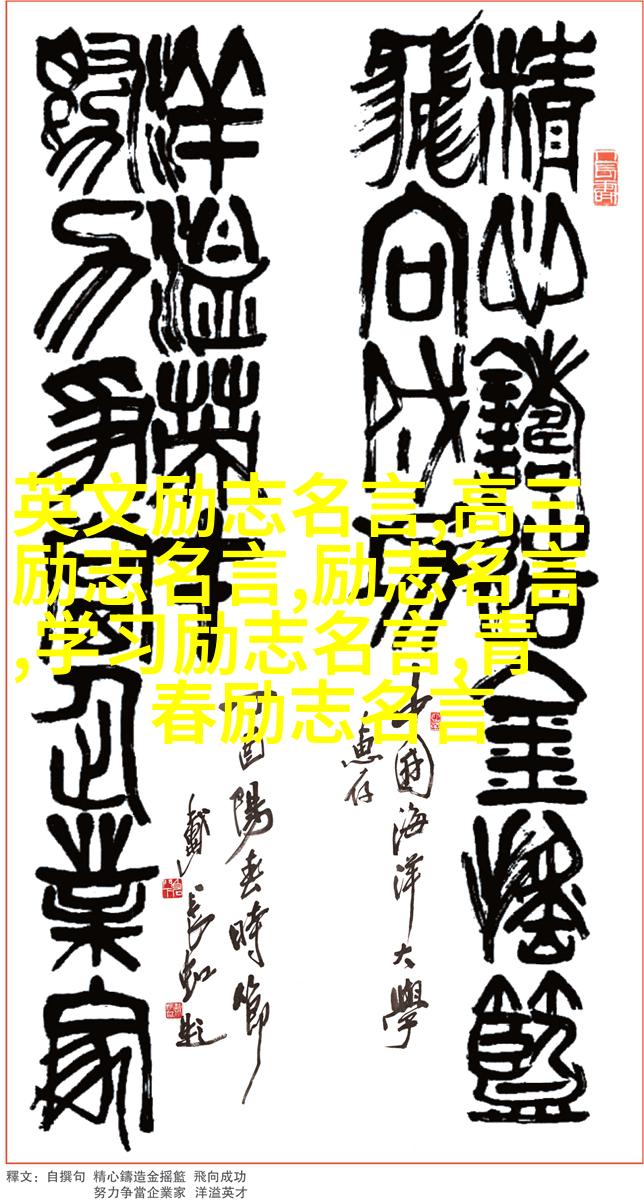 精心鑄造金摇籃
飛向成功
中國海洋大學
惠存
洋溢英才
努力争當企業家
丁酉陽春時節
戴長虹題
英文励志名言,高三
励志名言,励志名言
,学习励志名言,青
春励志名言
釋文：自撰句 精心鑄造金摇籃 飛向成功
努力争當企業家 洋溢英才